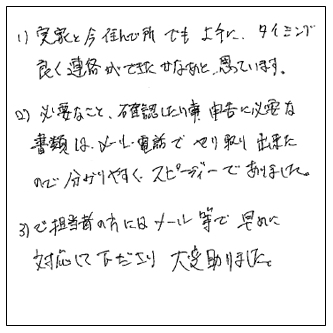 1) 実家と今住んで所でも上手に、タイミング
良く連絡ができたかなあと、思っています。
2) 必要なこと、確認したい事 申告に必要な
書類は、メール・電話でやり取り出来た
ので分かりやすく、スピーディーでありました。
3) ご担当者の方にはメール等で早めに
対応して下ださり 大変助りました。